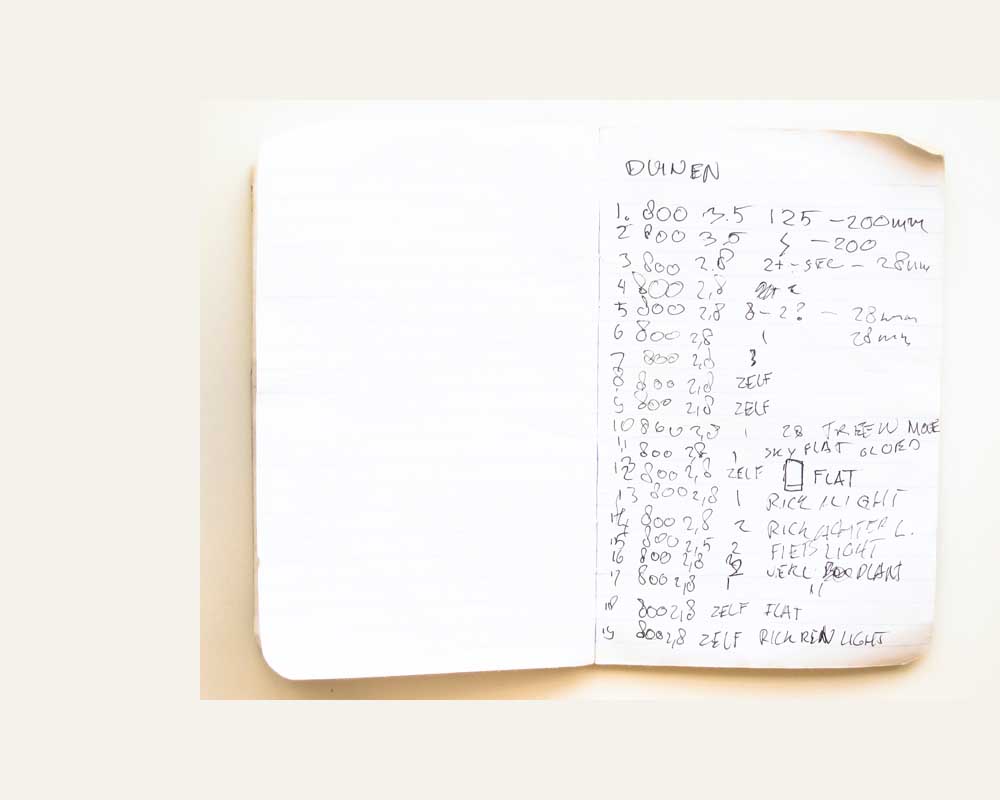 DUINEN
1. 800 3.5 125 - 200mm
2 800 3.5 - 200
3 800 2.8 2+ - SEC - 28mm
4 800 2,8
5 800 2,8 8-2? - 28mm
6 800 2,8 1 28mm
7 800 2,8 3
8 800 2,8 ZELF
9 800 2,8 ZELF
10 800 2,8 1 28
11 800 28 1 SKY FLAT GLOED
12 800 2,8 ZELF FLAT
13 800 2,8 1 RICK LIGHT
14 800 2,8 2 RICK ACHTER L.
15 800 2,5 2 FIETSLIGHT
16 800 2,8 2 PLANT
17 800 2,8 1 "
18 800 2,8 ZELF FLAT
19 800 2,8 ZELF RICK REN LIGHT